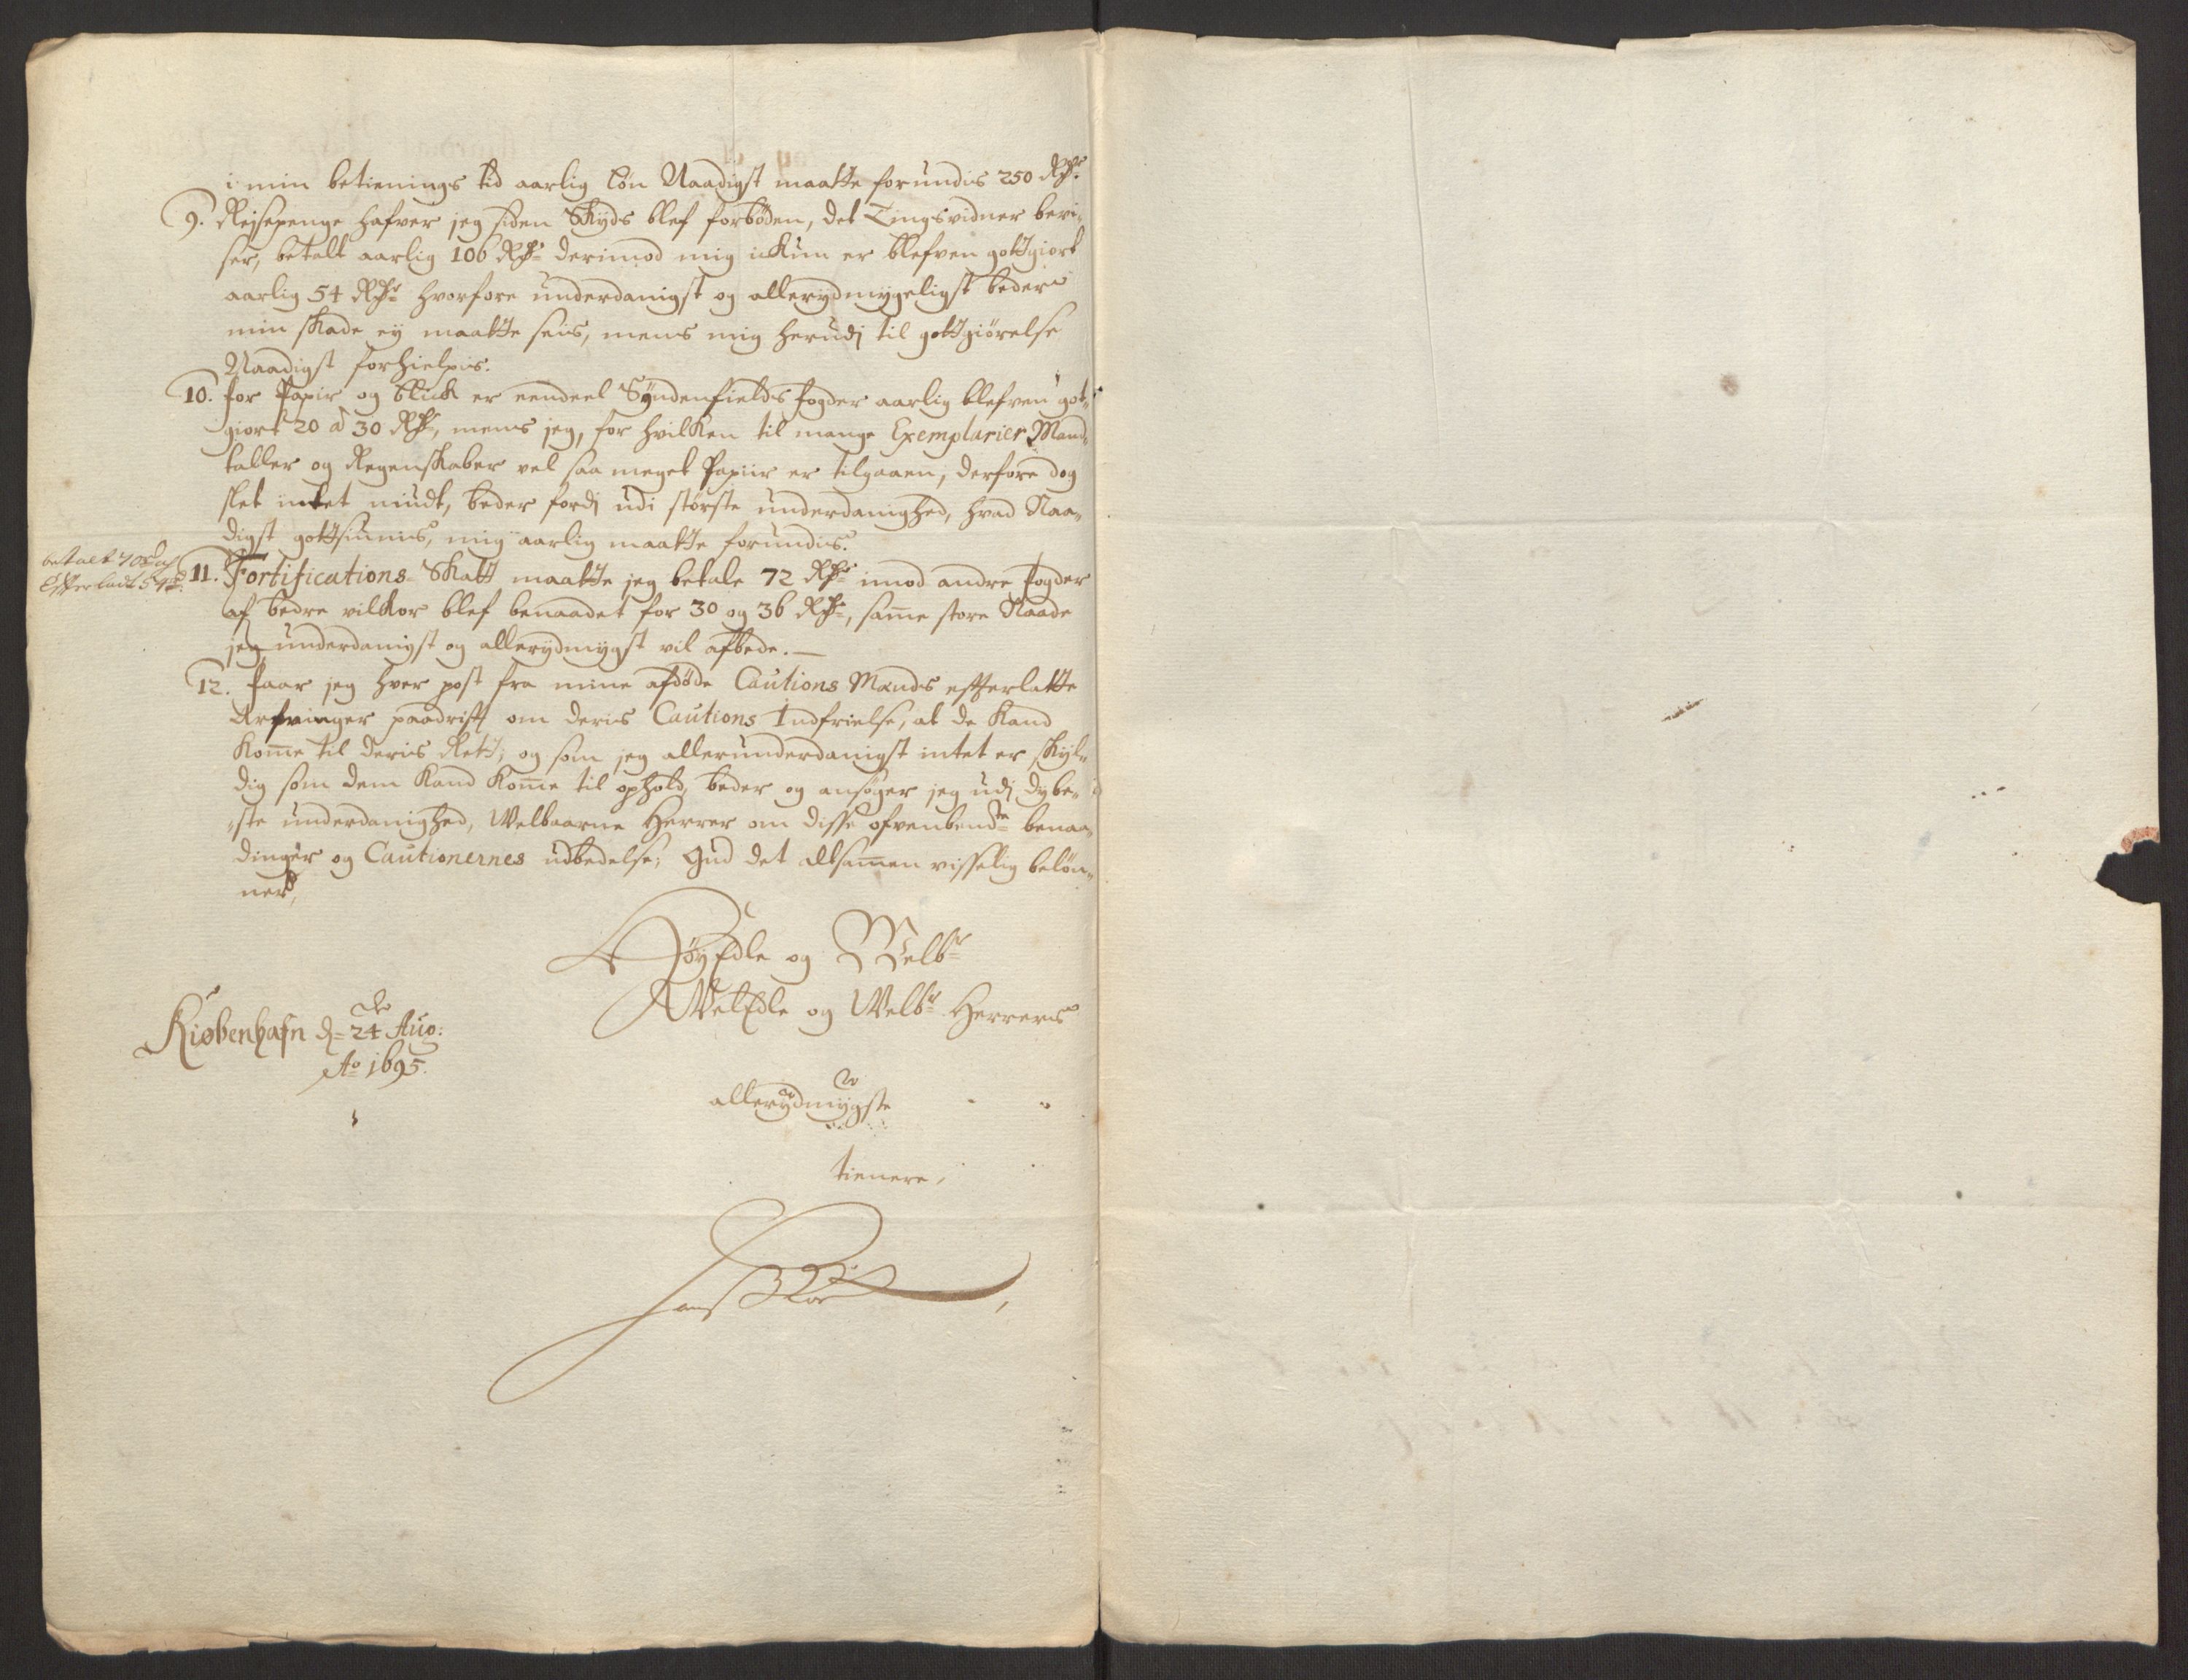 i min betienings tid aarlig løn Naadigst maatte forundis 250 Rdr.
9. Reisepenge hafver jeg siden Skyds blef forböden, det Tingsvidner bevi-
ser, betalt aarlig 106 Rdr derimod mig ickun er blefven gottgiort
aarlig 54 Rdr hvorfore underdanigst og allerydmygeligst beder
min skade ey maatte seis, mens mig herudj til gottgiörelse
Naadigst forhielpis.
10. for Papir og blick er eendeel Syndenfields fogder aarlig blefven got-
giort 20 a 30 Rdr, mens jeg, for hvilken til mange Exemplarier Mand-
taller og Regenskaber vel saa meget Papiir er tilgaaen, derfore dog
slet intet niudt, beder fordj udi störste underdanighed, hvad Naa-
digst gottsiunis, mig aarlig maatte forundis.
betalt 70 rd og
Efterladt 54
11. Fortifications-Skatt maatte jeg betale 72 Rdr imod andre fogder
af bedre vilkor blef benaadet for 30 og 36 Rdr, same store Naade
jeg underdanigst og allerydmygst vil afbede.
12. faar jeg hver post fra mine afdöde Cautions Mænds efterlatte
Arfvinger paadrift om deris Cautions Indfrielse, at de kand
kome til deris Rett; og som jeg allerunderdanigst intet er skyl-
dig som dem kand kome til ophold, beder og ansöger jeg udj dybe-
ste underdanighed, Welbaarne Herrer om disse ofvenbendte benaa-
dinger og Cautionernes udbedelse; Gud det altsamen visselig belön-
ner,
HöyEdle og Welbr
WelEdle og Welbr Herrers
Kiøbenhafn d= 24 Aug:
Ao 1695.
allerydmygste
tienere,